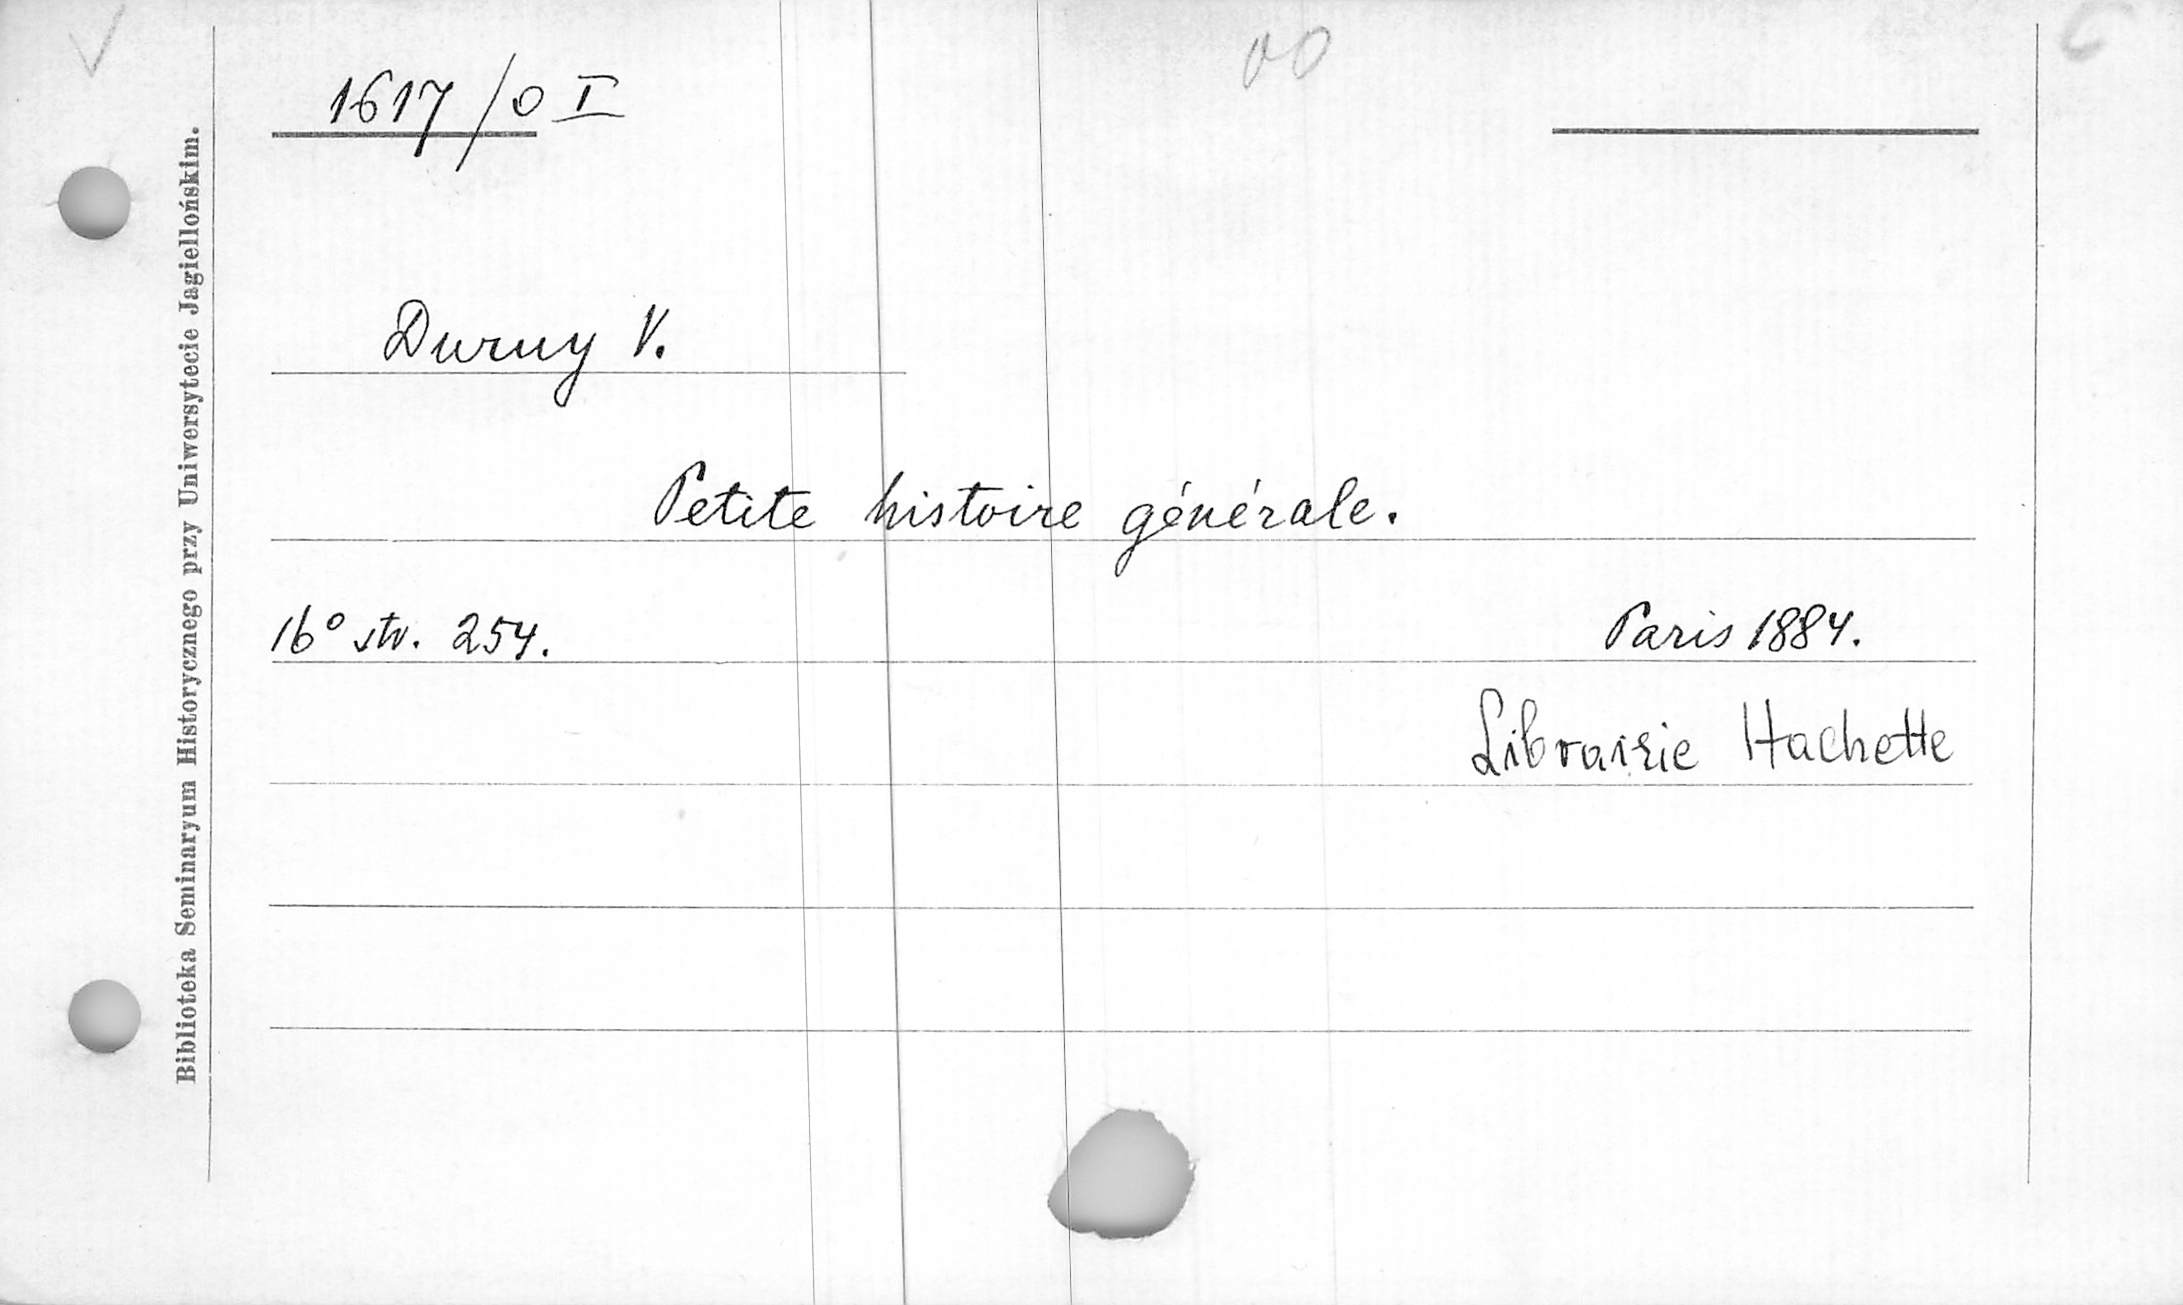 1617/0 I
00
Duruy V.
Petite histoire générale.
16° str. 254.
Paris 1884.
Librairie Hachette
Biblioteka Seminaryum Historycznego przy Uniwersytecie Jagiellońskim.